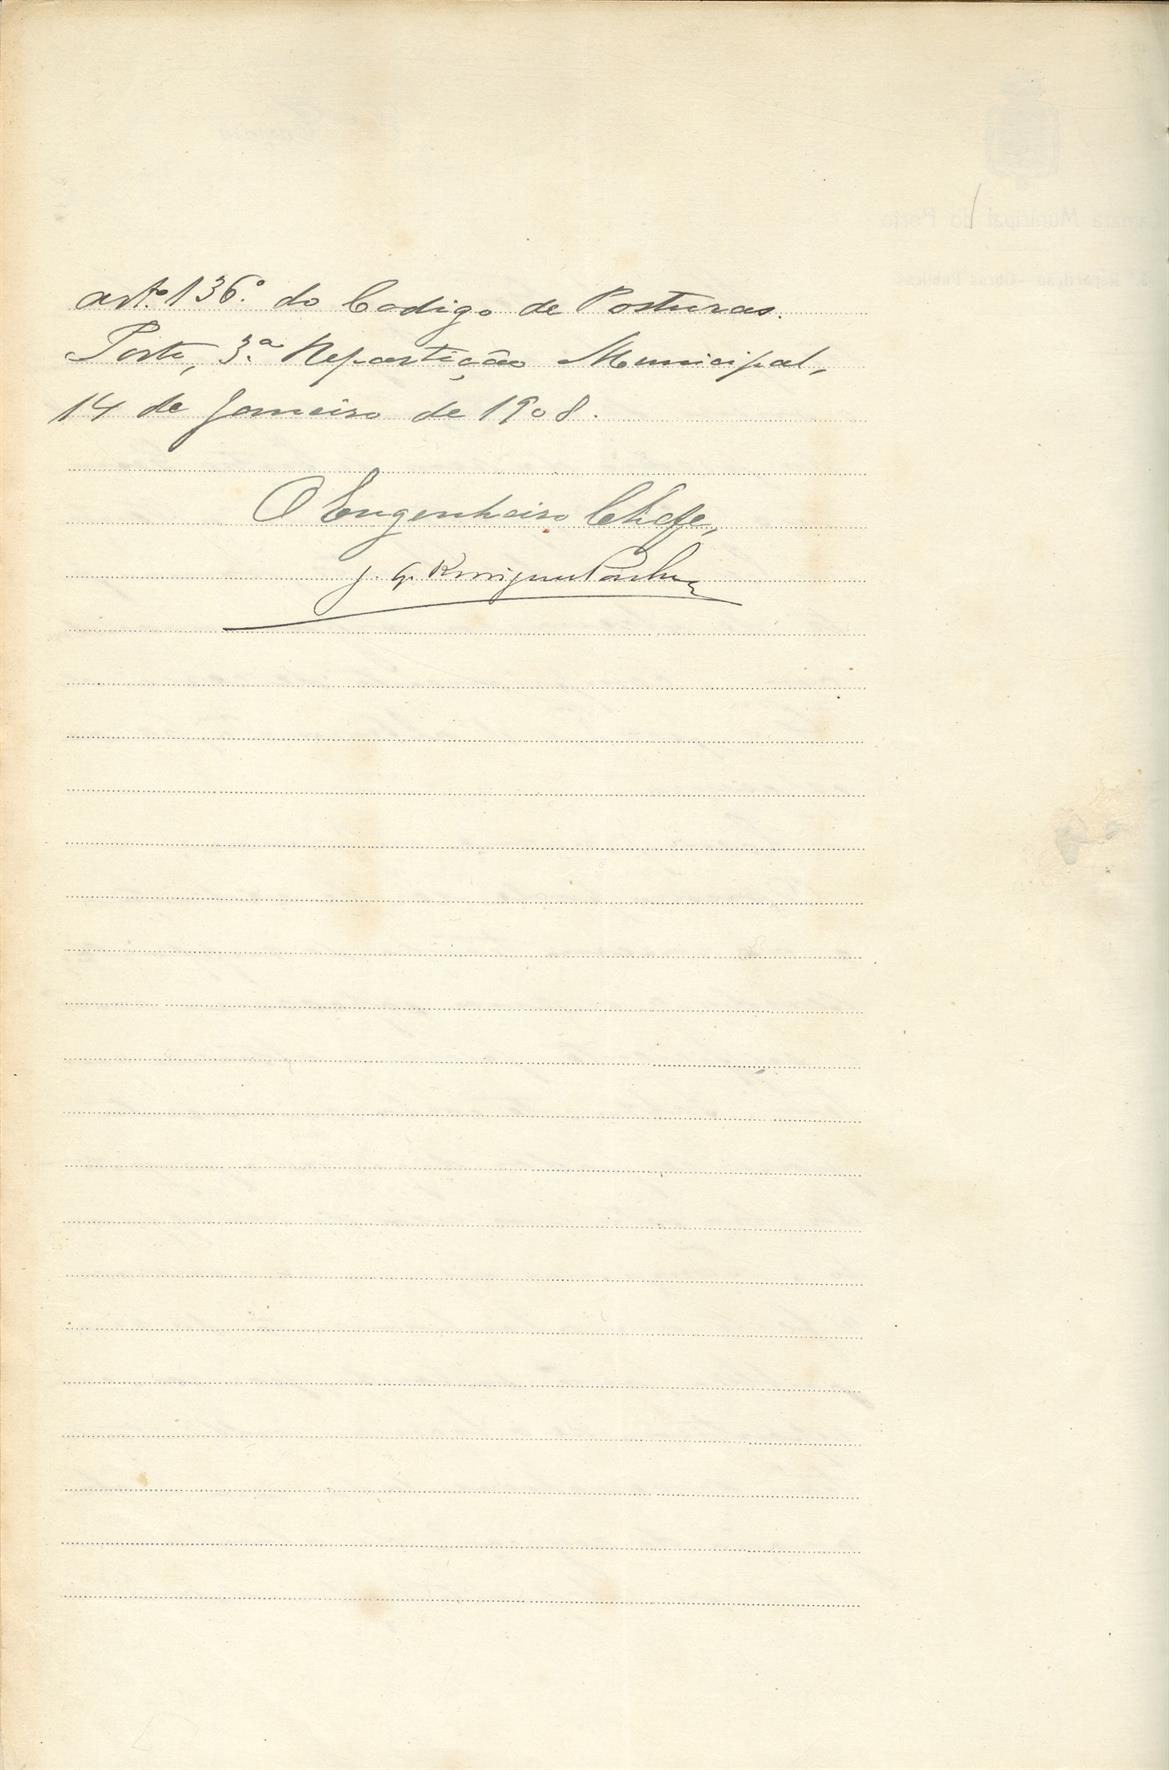 artº 136º do Codigo de Posturas.
Porto, 3.ª Repartição Municipal,
14 de Janeiro de 1908.
O Engenheiro Chefe,
J. G.